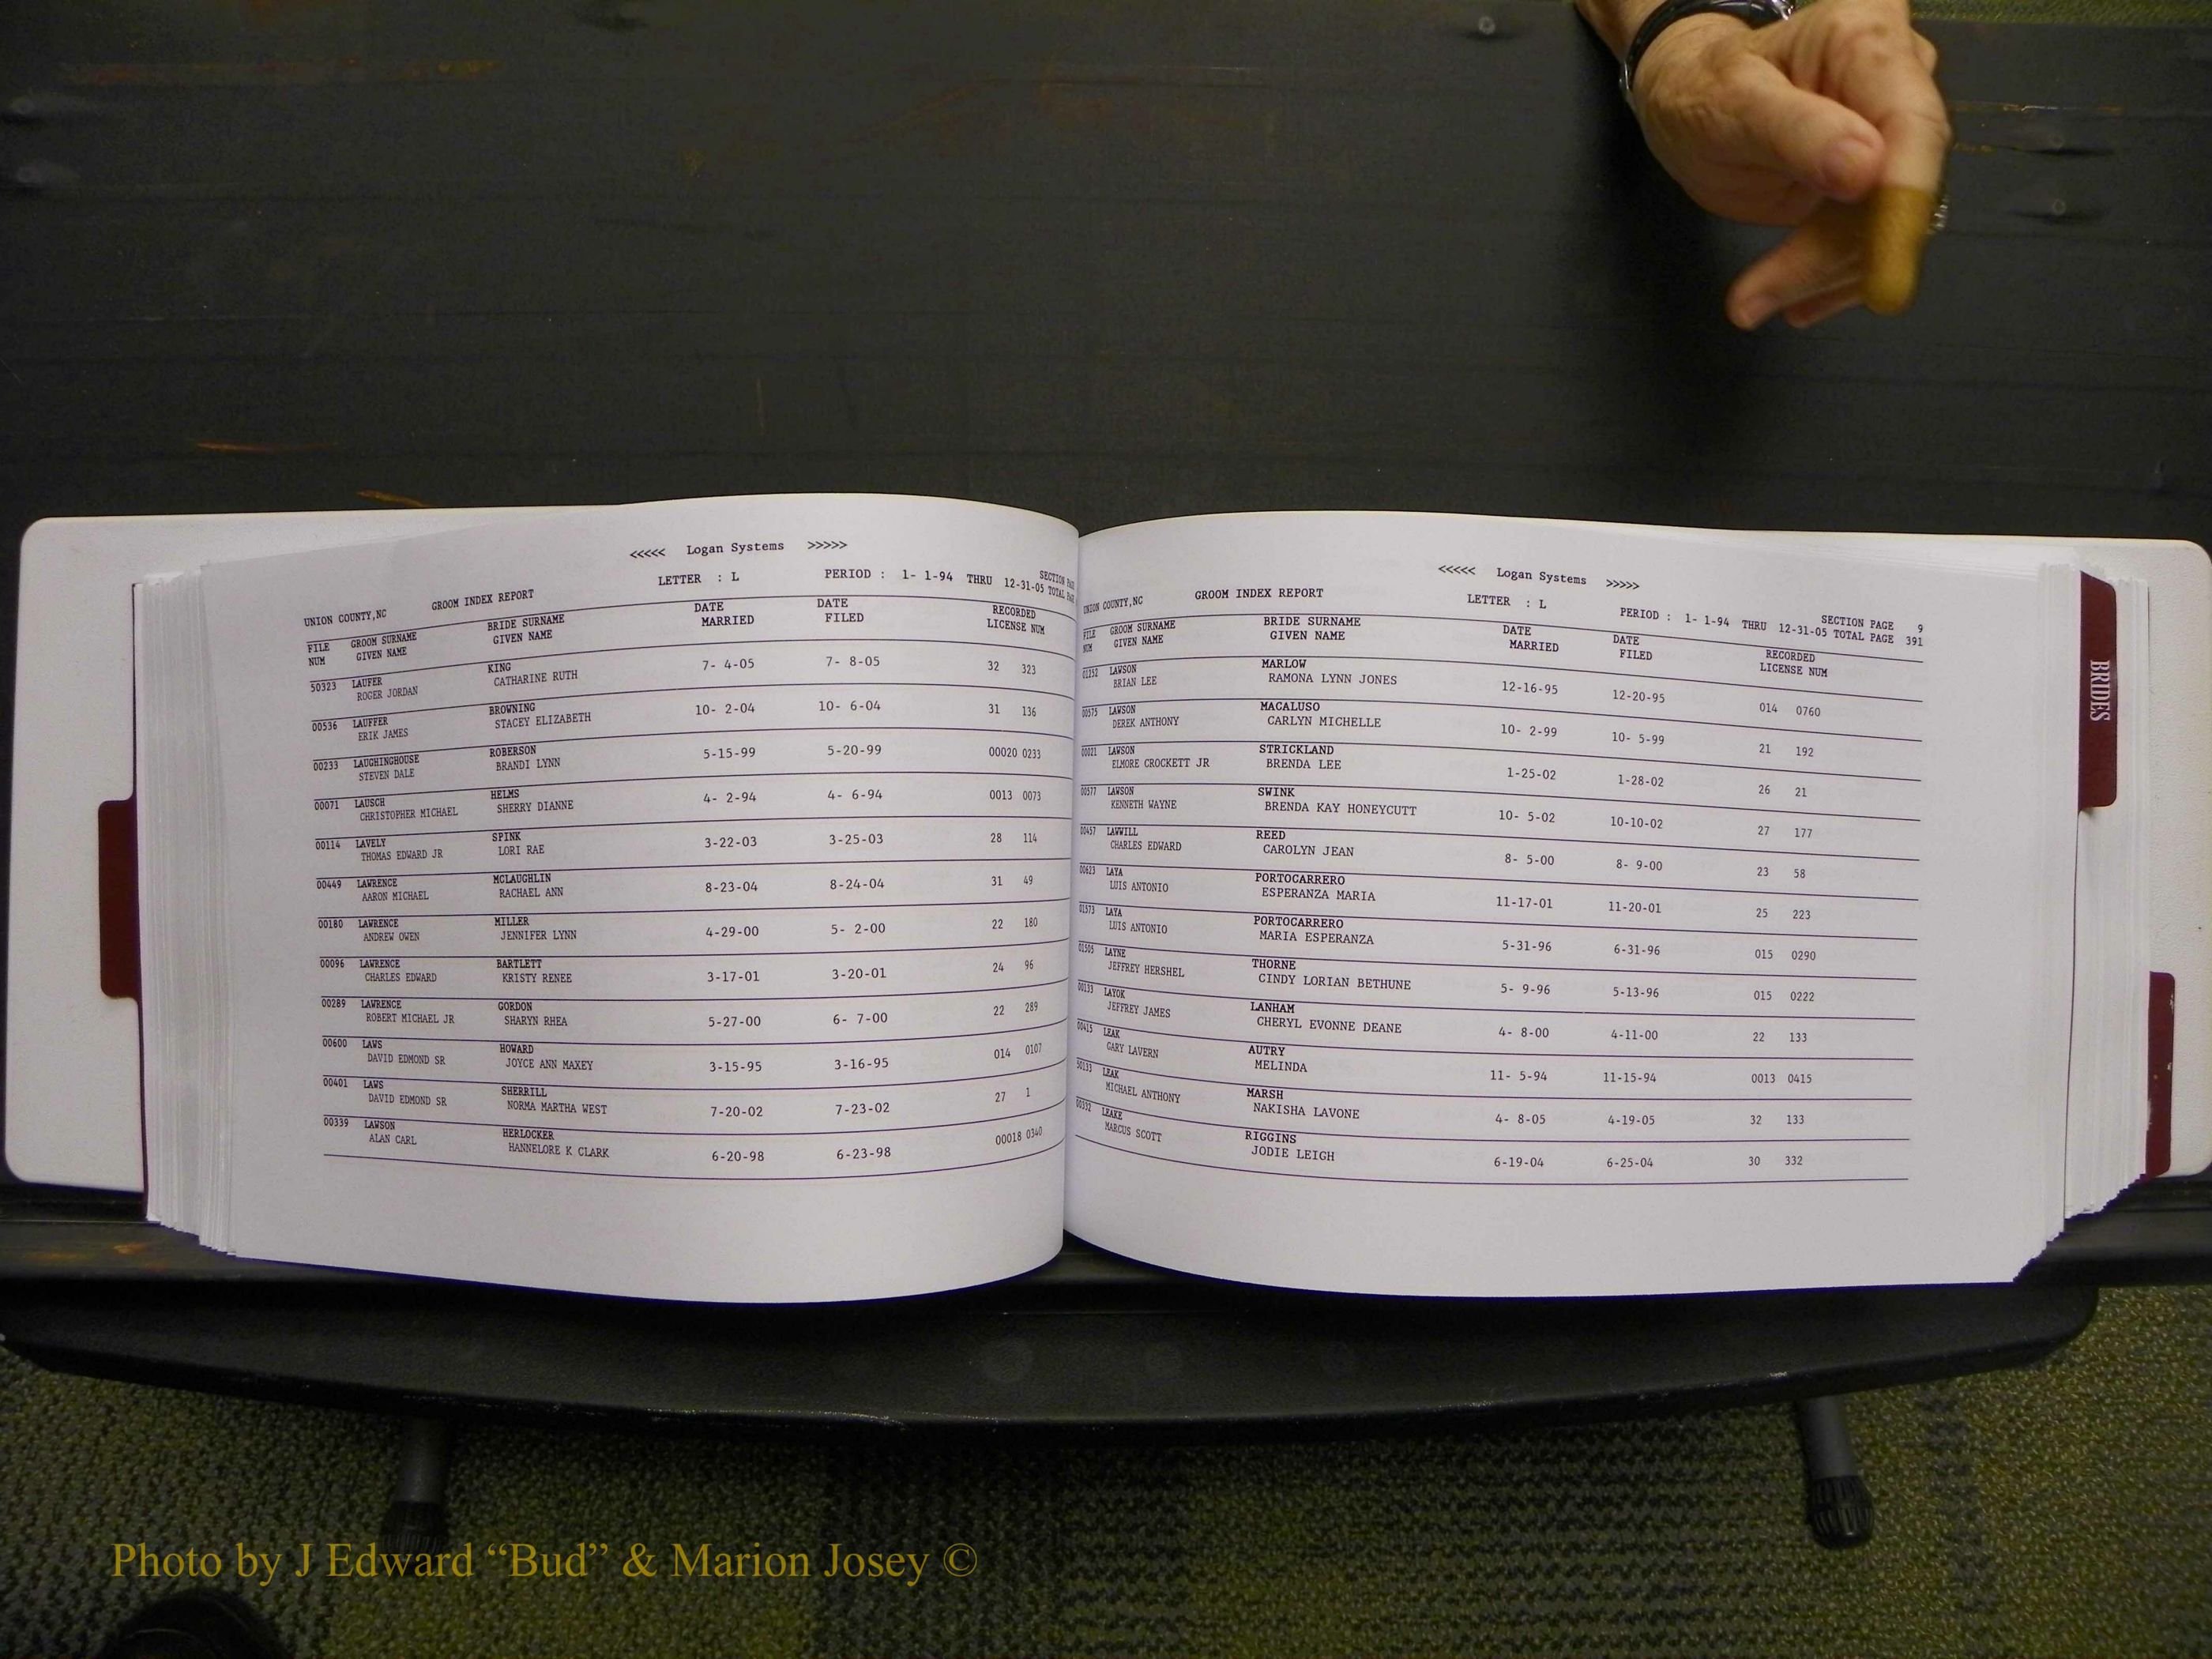 <<<<< Logan Systems >>>>>
UNION COUNTY,NC GROOM INDEX REPORT LETTER : L PERIOD : 1- 1-94 THRU 12-31-05 TOTAL
SECTION
FILE GROOM SURNAME BRIDE SURNAME DATE DATE RECORDED
NUM GIVEN NAME GIVEN NAME MARRIED FILED LICENSE NUM
50323 LAUFER KING 7- 4-05 7- 8-05 32 323
ROGER JORDAN CATHARINE RUTH
00536 LAUFFER BROWNING 10- 2-04 10- 6-04 31 136
ERIK JAMES STACEY ELIZABETH
00233 LAUGHINGHOUSE ROBERSON 5-15-99 5-20-99 00020 0233
STEVEN DALE BRANDI LYNN
00071 LAUSCH HELMS 4- 2-94 4- 6-94 0013 0073
CHRISTOPHER MICHAEL SHERRY DIANNE
00114 LAVELY SPINK 3-22-03 3-25-03 28 114
THOMAS EDWARD JR LORI RAE
00449 LAWRENCE MCLAUGHLIN 8-23-04 8-24-04 31 49
AARON MICHAEL RACHAEL ANN
00180 LAWRENCE MILLER 4-29-00 5- 2-00 22 180
ANDREW OWEN JENNIFER LYNN
00096 LAWRENCE BARTLETT 3-17-01 3-20-01 24 96
CHARLES EDWARD KRISTY RENEE
00289 LAWRENCE GORDON 5-27-00 6- 7-00 22 289
ROBERT MICHAEL JR SHARYN RHEA
00600 LAWS HOWARD 3-15-95 3-16-95 014 0107
DAVID EDMOND SR JOYCE ANN MAXEY
00401 LAWS SHERRILL 7-20-02 7-23-02 27 1
DAVID EDMOND SR NORMA MARTHA WEST
00339 LAWSON HERLOCKER 6-20-98 6-23-98 00018 0340
ALAN CARL HANNELORE K CLARK
<<<<< Logan Systems >>>>>
UNION COUNTY,NC GROOM INDEX REPORT LETTER : L PERIOD : 1- 1-94 THRU 12-31-05 TOTAL PAGE 391
SECTION PAGE 9
FILE GROOM SURNAME BRIDE SURNAME DATE DATE RECORDED
NUM GIVEN NAME GIVEN NAME MARRIED FILED LICENSE NUM
01352 LAWSON MARLOW 12-16-95 12-20-95 014 0760
BRIAN LEE RAMONA LYNN JONES
00575 LAWSON MACALUSO 10- 2-99 10- 5-99 21 192
DEREK ANTHONY CARLYN MICHELLE
00021 LAWSON STRICKLAND 1-25-02 1-28-02 26 21
ELMORE CROCKETT JR BRENDA LEE
00577 LAWSON SWINK 10- 5-02 10-10-02 27 177
KENNETH WAYNE BRENDA KAY HONEYCUTT
00457 LAWWILL REED 8- 5-00 8- 9-00 23 58
CHARLES EDWARD CAROLYN JEAN
00623 LAYA PORTOCARRERO 11-17-01 11-20-01 25 223
LUIS ANTONIO ESPERANZA MARIA
01573 LAYA PORTOCARRERO 5-31-96 6-31-96 015 0290
LUIS ANTONIO MARIA ESPERANZA
01505 LAYNE THORNE 5- 9-96 5-13-96 015 0222
JEFFREY HERSHEL CINDY LORIAN BETHUNE
00133 LAYOK LANHAM 4- 8-00 4-11-00 22 133
JEFFREY JAMES CHERYL EVONNE DEANE
00415 LEAK AUTRY 11- 5-94 11-15-94 0013 0415
GARY LAVERN MELINDA
50133 LEAK MARSH 4- 8-05 4-19-05 32 133
MICHAEL ANTHONY NAKISHA LAVONE
00332 LEAKE RIGGINS 6-19-04 6-25-04 30 332
MARCUS SCOTT JODIE LEIGH
BRIDES
Photo by J Edward “Bud” & Marion Josey ©